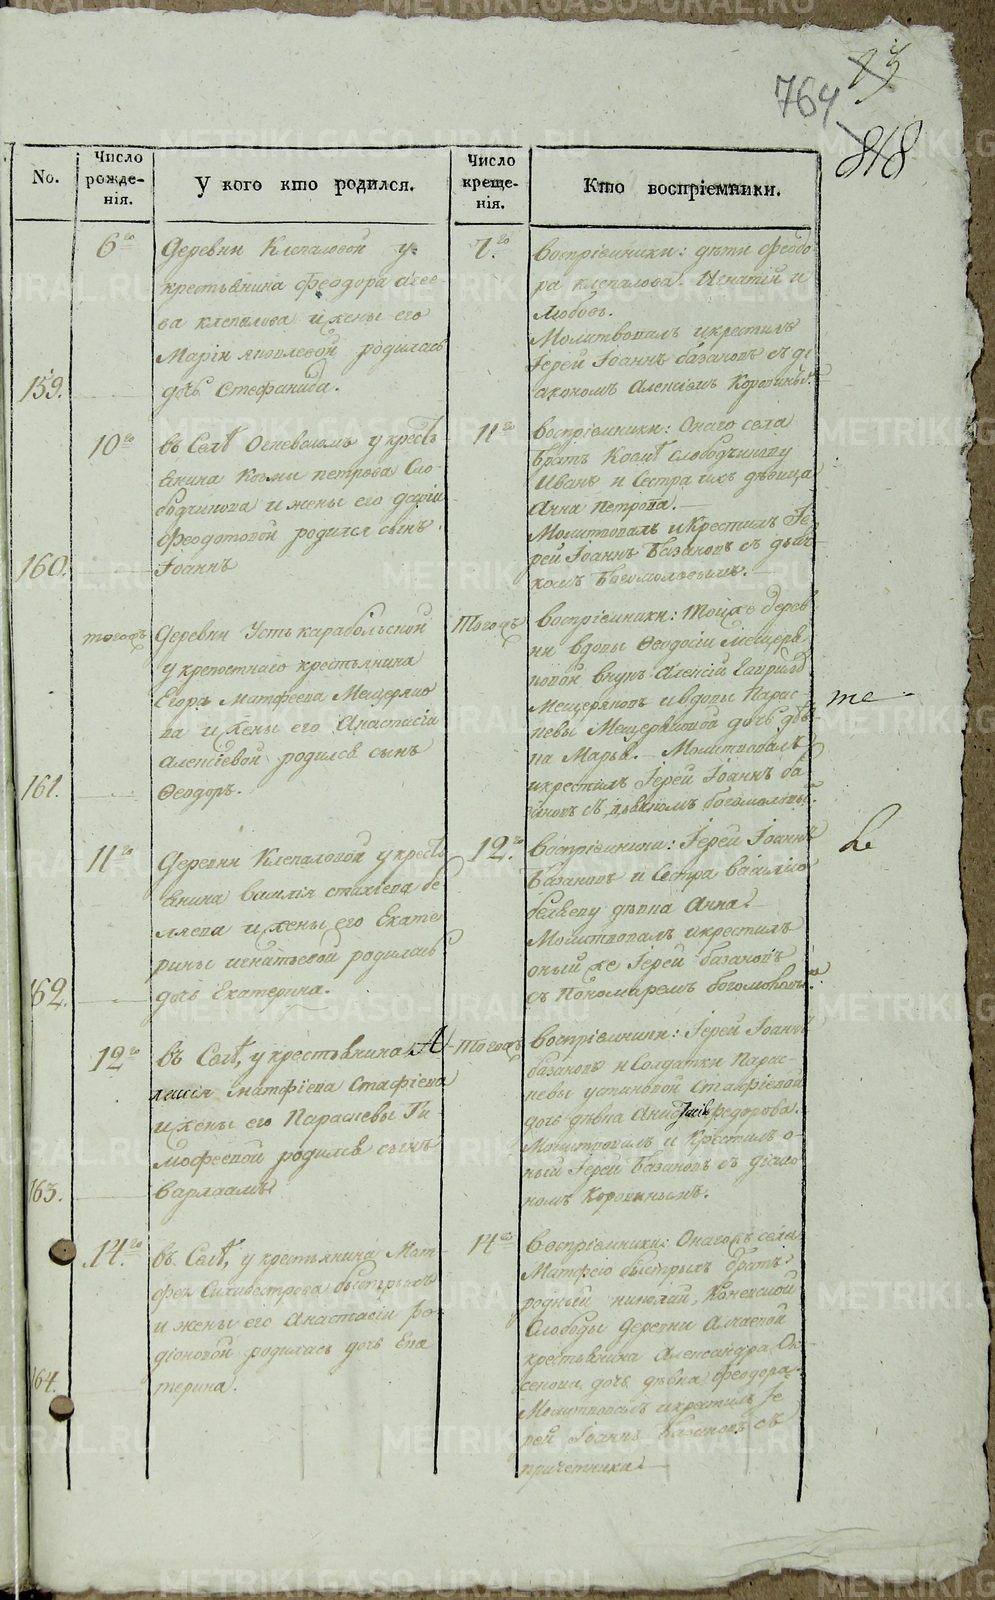 764
818
No.
Число рожденія.
У кого кто родился.
Число крещенія.
Кто воспріемники.
159.
6го
Деревни Клепаловой у
крестьянина Феодора Агее-
ва Клепалова и жены его
Маріи Яковлевой родилась
дочь Стефанида.
7го
Воспріемники: дѣти Феодо-
ра Клепалова: Игнатій и
Любовь.
Молитвовалъ и крестилъ
Іерей Іоаннъ Базановъ съ ді-
акономъ Алексіемъ Коровинымъ.
160.
10го
въ Селѣ Огневскомъ у крест-
янина Козмы Петрова Сло-
бодчикова и жены его Даріи
Феодотовой родился сынъ
Іоаннъ
11го
Воспріемники: Онаго села
Братъ Козмѣ Слободчикову
Иванъ и Сестра ихъ дѣвица
Анна Петрова.
Молитвовалъ и Крестилъ Іе-
рей Іоаннъ Базановъ съ дьяч-
комъ Богомоловымъ.
161.
тогожъ
Деревни Усть карабольской
у крепостнаго крестьянина
Егора Матфеева Мещеряко-
ва и жены его Анастасіи
Алексіевой родился сынъ
Ѳеодоръ.
Тогожъ
Воспріемники: Тойже дерев
ни вдовы Ѳеодосіи Мещеря
ковой внукъ Алексій Гаврилов
Мещеряковъ и вдовы Парас-
кевы Мещеряковой дочь дѣв
ка Марья. Молитвовалъ
и крестилъ Іерей Іоаннъ Ба
зановъ съ дьячкомъ Богомоловым.
те
162.
11го
Деревни Клепаловой у крест
янина Василія Стахіева Бе
ляева и жены его Екате
рины Игнатьевой родилась
дочь Екатерина.
12го
Воспріемники: Іерей Іоаннъ
Базановъ и Сестра Василію
Беляеву дѣвка Анна.
Молитвовалъ и крестилъ
оный же Іерей Базановъ
съ Пономаремъ Богомоловым.
163.
12го
въ Селѣ, у крестьянина А
лексія Матфіева Стафіева
и жены его Парасковы Ти
мофеевой родился сынъ
Варлаамъ
Тогожъ
Воспріемники: Іерей Іоаннъ
Базановъ и Солдатки Парас-
кевы Устиновой Стафіевой
дочь дѣвка Федорова.
Молитвовалъ и Крестилъ о-
ный Іерей Базановъ съ діако
номъ Коровинымъ.
164.
14го
въ Селѣ, у крестьянина Мат
фея Силивестрова Быстрыхъ
и жены его Анастасіи Ро-
діоновой родилась дочь Ека
терина.
14го
Воспріемники: Онагожъ села
Матфею Быстрыхъ братъ
родный Николай,
Слободы деревни
крестьянина Александра
дочь дѣвка Феодора.
Молитвовалъ и крестилъ Іе
рей Іоаннъ Базановъ съ
причетники.
METRIKI.GASO-URAL.RU